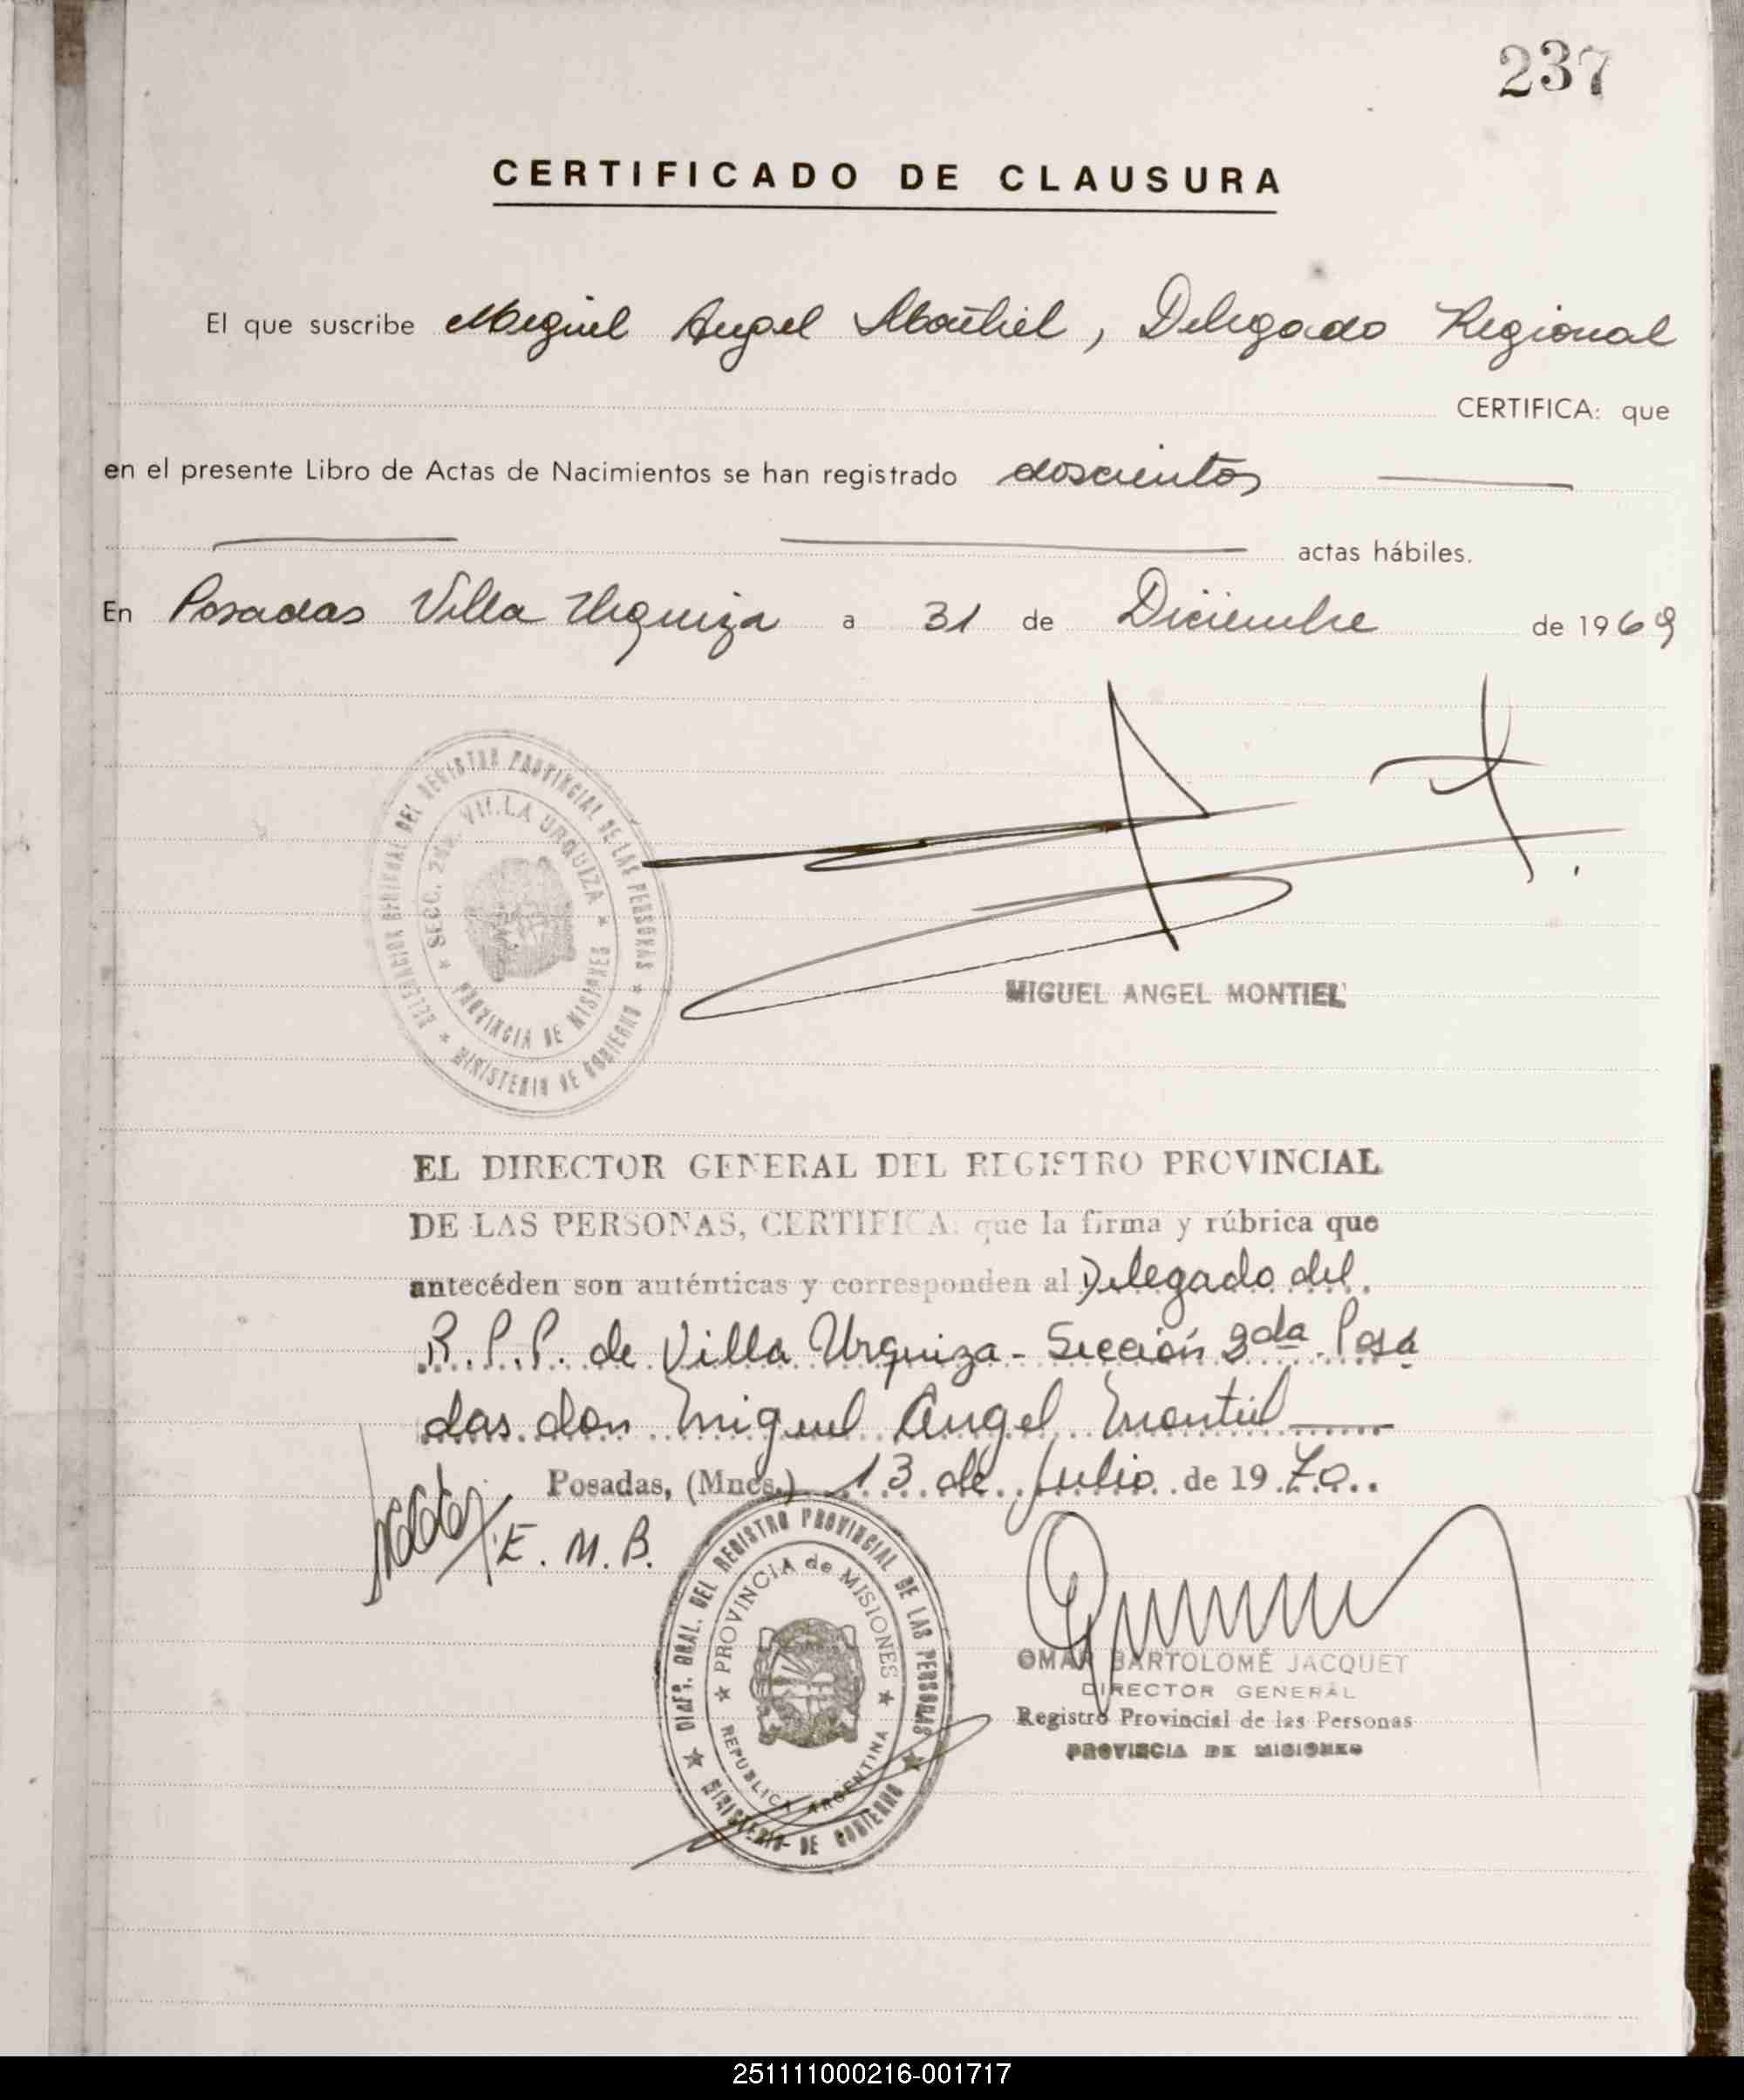 237
CERTIFICADO DE CLAUSURA
El que suscribe Miguel Angel Montiel, Delegado Regional
CERTIFICA: que
en el presente Libro de Actas de Nacimientos se han registrado doscientos
actas hábiles.
En Posadas Villa Urquiza a 31 de Diciembre de 1969
DELEGACION GENERAL DEL REGISTRO PROVINCIAL DE LAS PERSONAS
SECC. 2da. VILLA URQUIZA
PROVINCIA DE MISIONES
MINISTERIO DE GOBIERNO
MIGUEL ANGEL MONTIEL
EL DIRECTOR GENERAL DEL REGISTRO PROVINCIAL
DE LAS PERSONAS, CERTIFICA: que la firma y rúbrica que
antecéden son auténticas y corresponden al Delegado del
R.P.P. de Villa Urquiza - Sección 2da Posa
das don Miguel Angel Montiel
Posadas, (Mnes.) 13 de Julio de 1970
E. M. B.
REGISTRO PROVINCIAL DE LAS PERSONAS
PROVINCIA de MISIONES
REPUBLICA ARGENTINA
MINISTERIO DE GOBIERNO
OMAR BARTOLOMÉ JACQUET
DIRECTOR GENERAL
Registro Provincial de las Personas
PROVINCIA DE MISIONES
251111000216-001717